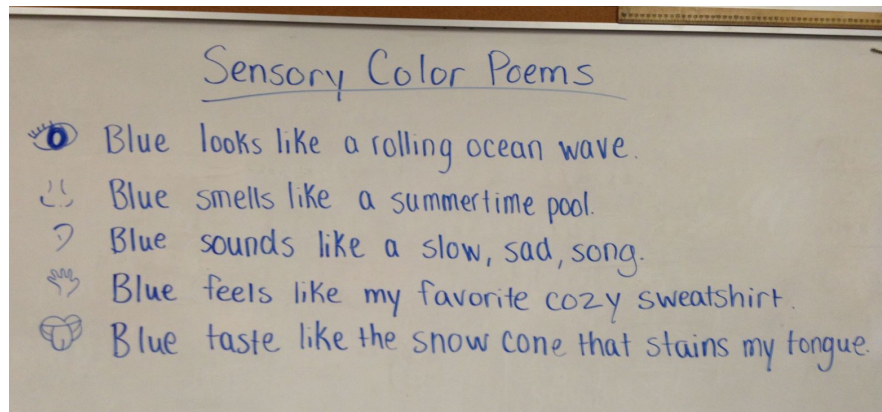 Sensory Color Poems
Blue looks like a rolling ocean wave.
Blue smells like a summertime pool.
Blue sounds like a slow, sad, song.
Blue feels like my favorite cozy sweatshirt.
Blue taste like the snow cone that stains my tongue.